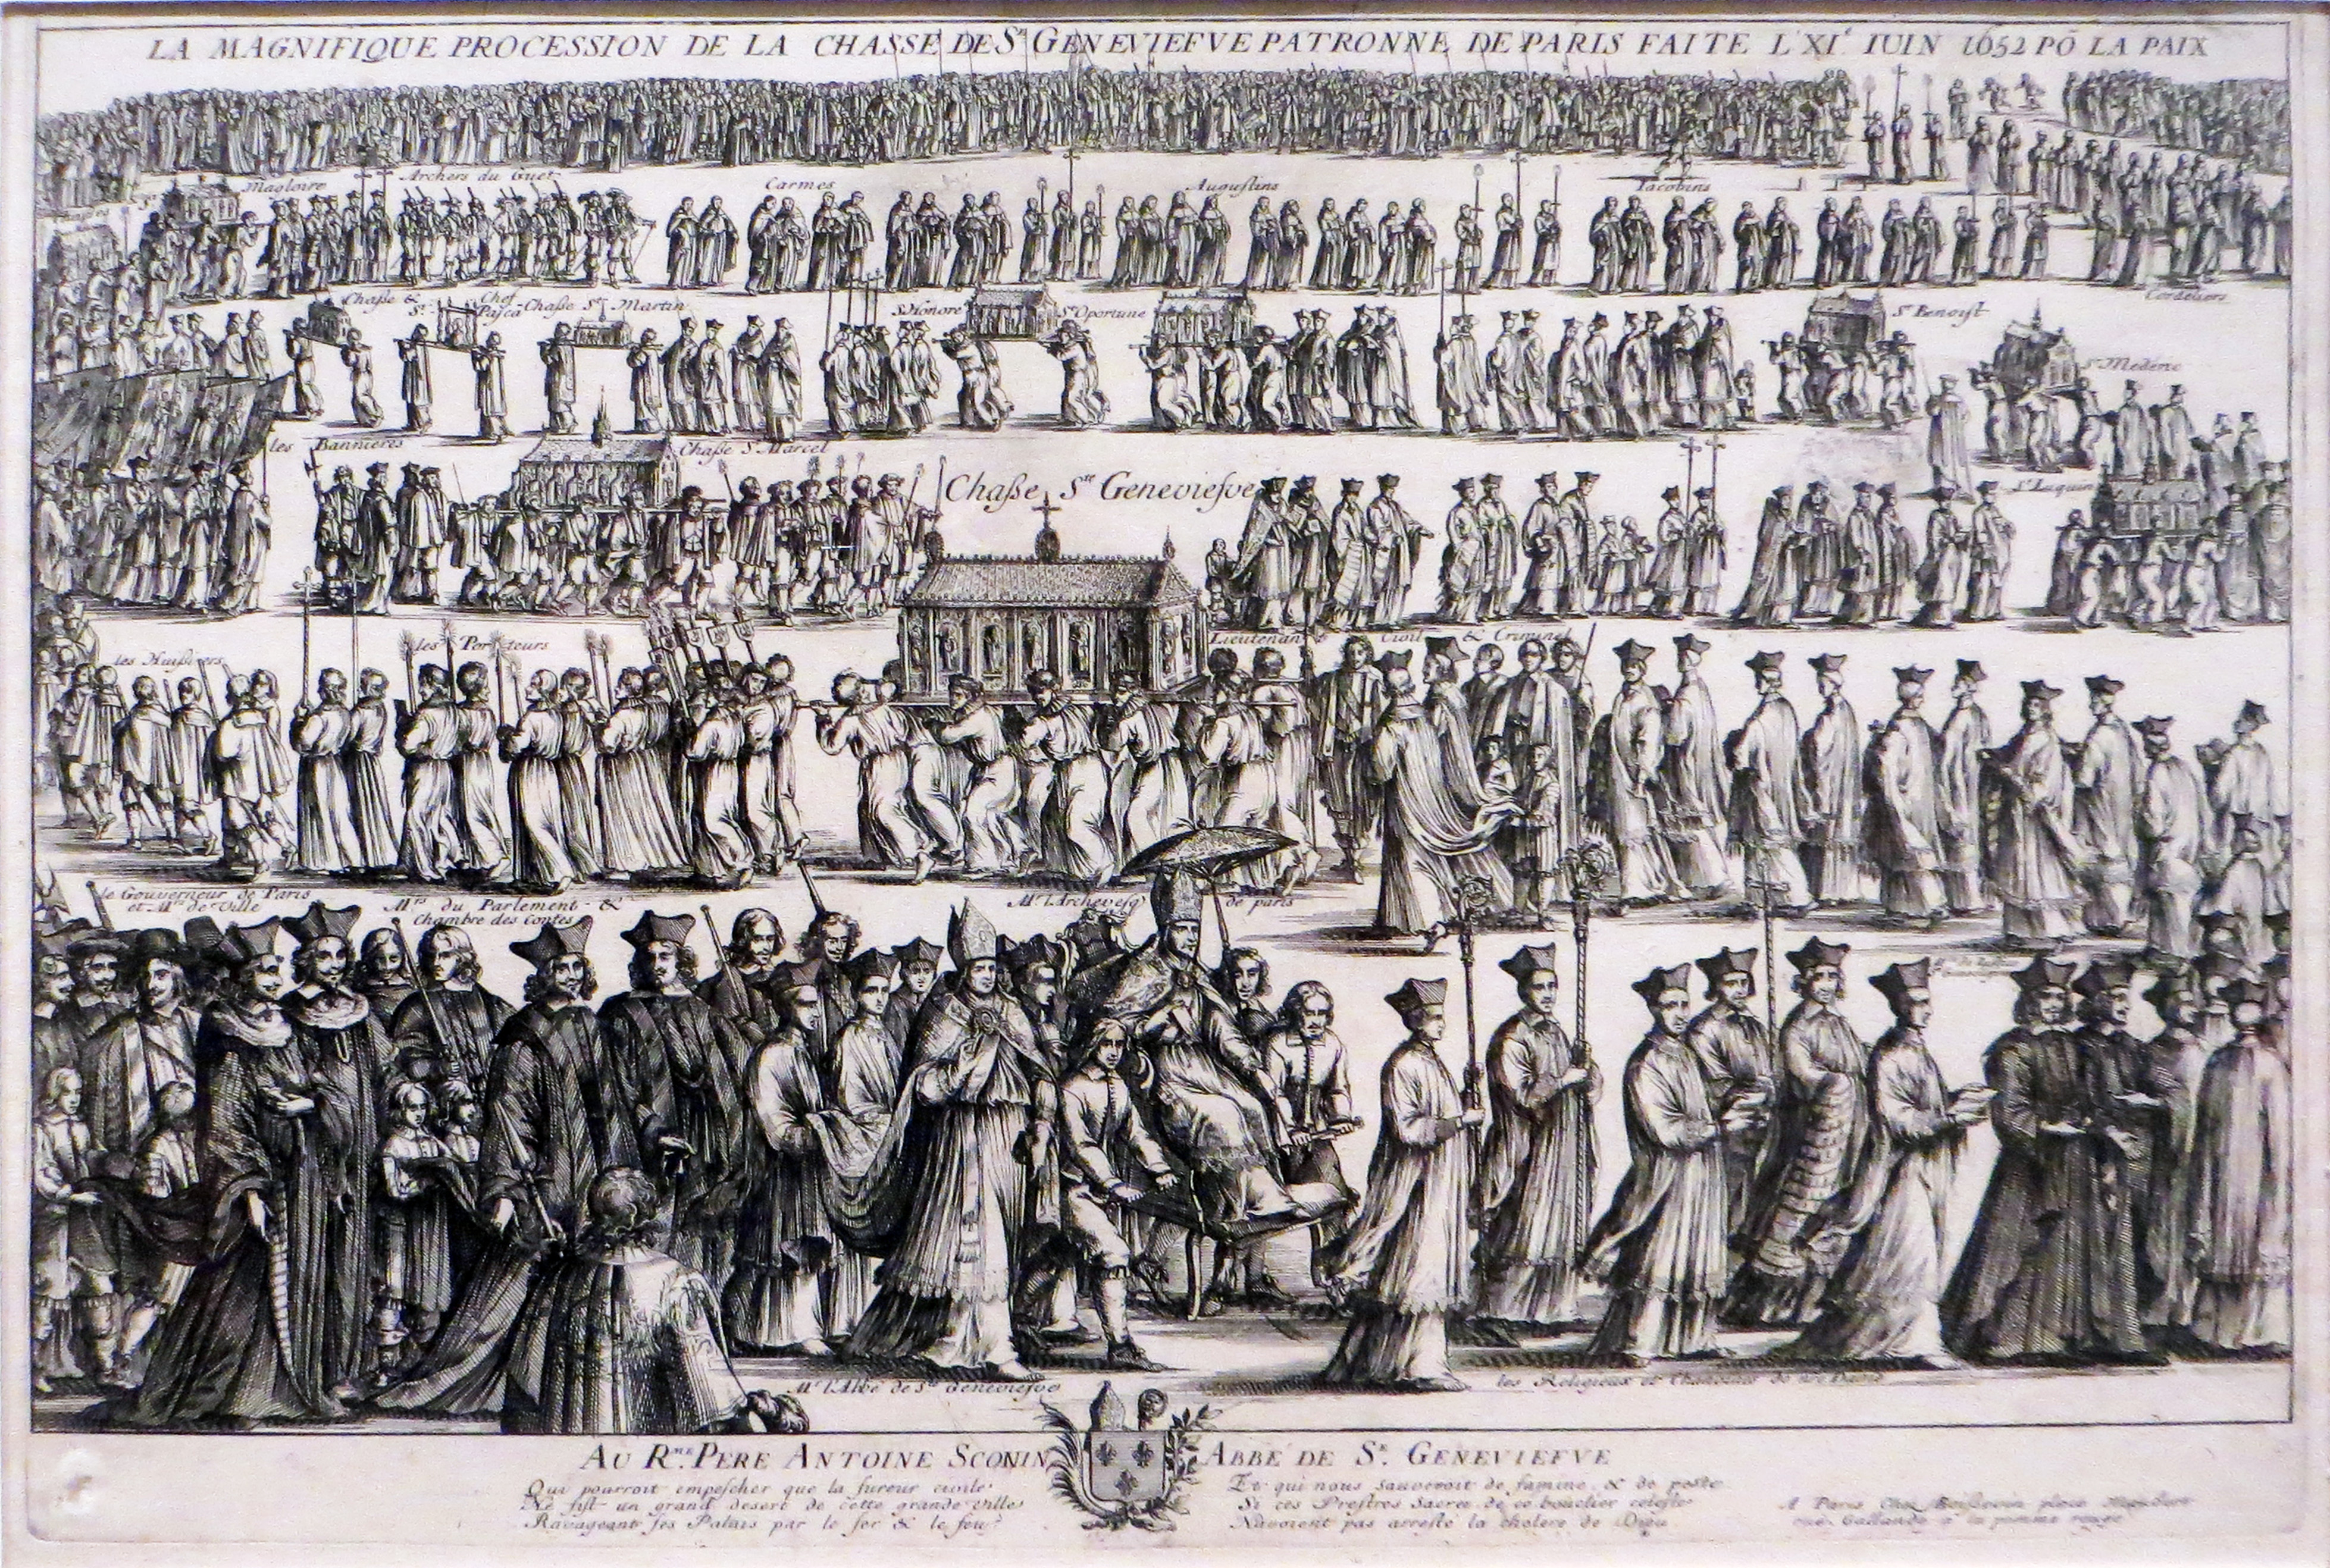 LA MAGNIFIQUE PROCESSION DE LA CHASSE DE Sᵉ GENEVIEFVE PATRONNE DE PARIS FAITE L'XIᵉ IUIN 1652 PŌ LA PAIX
Sᵗ Magloire
Archers du Guet
Carmes
Augustins
Iacobins
Cordeliers
Chaße &
Chef
Sᵗ Pasca
Chaße Sᵗ Martin
S Honore
Sᵗᵉ Oportune
Sᵗ Benoist
Sᵗ Mederic
les Bannieres
Chaße S Marcel
Chaße Sᵗᵉ Geneviefve
les Huißiers
les Porteurs
Lieutenant Civil & Criminel
le Gouverneur de Paris
et Mʳˢ de Ville
Mʳˢ du Parlement &
Chambre des Contes
Mʳ l'Archevesq de paris
Mʳ l'Abbé de Sᵗᵉ Geneviefve
les Religieux et Chanoines de
AU Rᴹᴱ PERE ANTOINE SCONIN ABBÉ DE Sᴱ GENEVIEFVE
Qui pourroit empescher que la fureur civile
Ne fist un grand desert de cette grande ville
Ravageant ses Palais par le fer & le feu?
Et qui nous sauveroit de famine, & de peste
Si ces Prestres Sacrez de ce bouclier celeste
N'avoient pas arresté la cholere de Dieu
A Paris Chez Boissevin place Maubert
rue Gallande a la pomme rouge